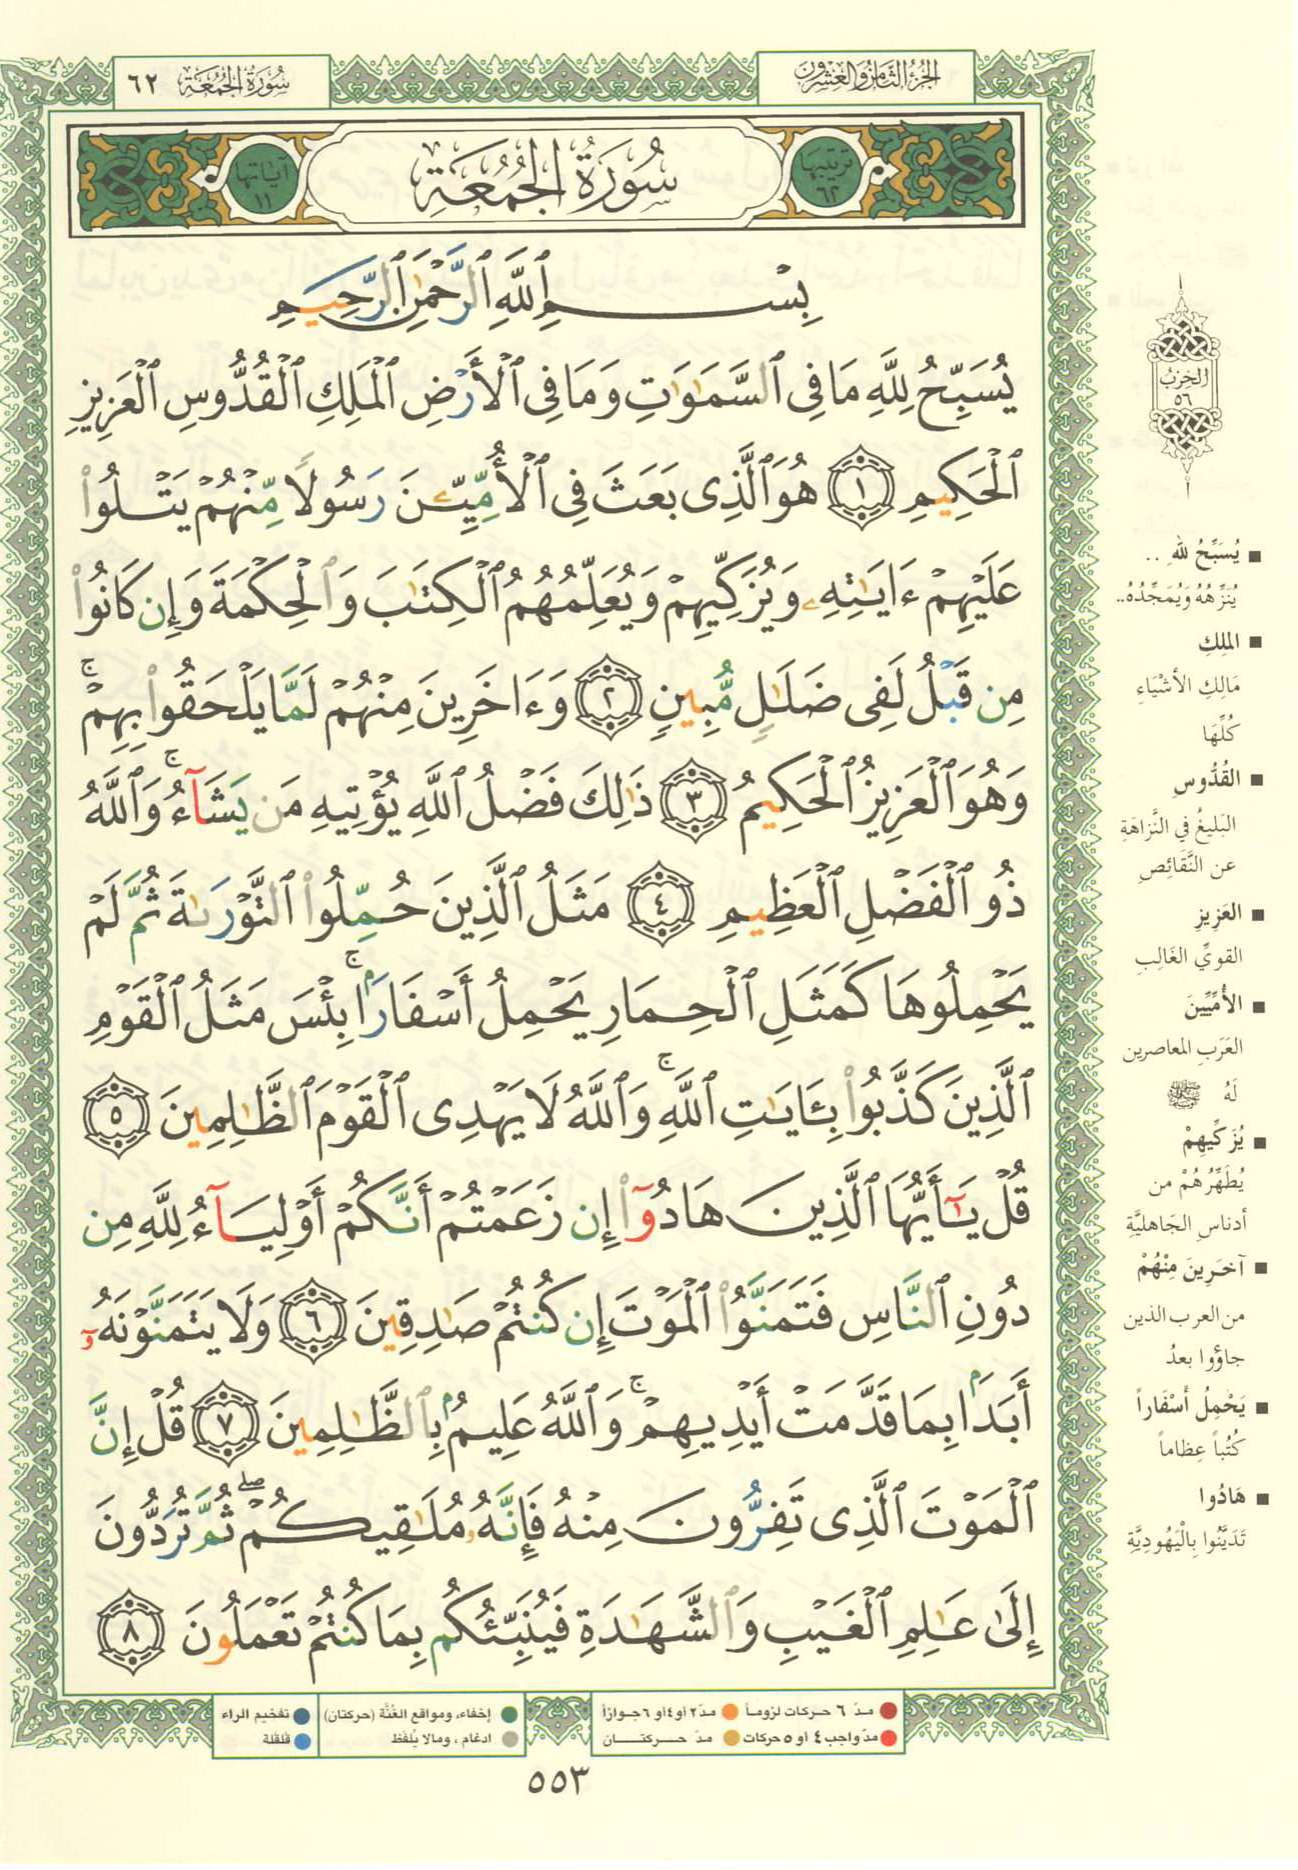 الجزء الثامن والعشرون
سورة الجمعة ٦٢
ترتيبها ٦٢
سُورَةُ الجُمُعَةِ
آياتها ١١
بِسْمِ ٱللَّهِ ٱلرَّحْمَٰنِ ٱلرَّحِيمِ
يُسَبِّحُ لِلَّهِ مَا فِى ٱلسَّمَٰوَٰتِ وَمَا فِى ٱلْأَرْضِ ٱلْمَلِكِ ٱلْقُدُّوسِ ٱلْعَزِيزِ
ٱلْحَكِيمِ ١ هُوَ ٱلَّذِى بَعَثَ فِى ٱلْأُمِّيِّۦنَ رَسُولًا مِّنْهُمْ يَتْلُوا۟
عَلَيْهِمْ ءَايَٰتِهِۦ وَيُزَكِّيهِمْ وَيُعَلِّمُهُمُ ٱلْكِتَٰبَ وَٱلْحِكْمَةَ وَإِن كَانُوا۟
مِن قَبْلُ لَفِى ضَلَٰلٍ مُّبِينٍ ٢ وَءَاخَرِينَ مِنْهُمْ لَمَّا يَلْحَقُوا۟ بِهِمْ ۚ
وَهُوَ ٱلْعَزِيزُ ٱلْحَكِيمُ ٣ ذَٰلِكَ فَضْلُ ٱللَّهِ يُؤْتِيهِ مَن يَشَآءُ ۚ وَٱللَّهُ
ذُو ٱلْفَضْلِ ٱلْعَظِيمِ ٤ مَثَلُ ٱلَّذِينَ حُمِّلُوا۟ ٱلتَّوْرَىٰةَ ثُمَّ لَمْ
يَحْمِلُوهَا كَمَثَلِ ٱلْحِمَارِ يَحْمِلُ أَسْفَارًۢا ۚ بِئْسَ مَثَلُ ٱلْقَوْمِ
ٱلَّذِينَ كَذَّبُوا۟ بِـَٔايَٰتِ ٱللَّهِ ۚ وَٱللَّهُ لَا يَهْدِى ٱلْقَوْمَ ٱلظَّٰلِمِينَ ٥
قُلْ يَٰٓأَيُّهَا ٱلَّذِينَ هَادُوٓا۟ إِن زَعَمْتُمْ أَنَّكُمْ أَوْلِيَآءُ لِلَّهِ مِن
دُونِ ٱلنَّاسِ فَتَمَنَّوُا۟ ٱلْمَوْتَ إِن كُنتُمْ صَٰدِقِينَ ٦ وَلَا يَتَمَنَّوْنَهُۥٓ
أَبَدًۢا بِمَا قَدَّمَتْ أَيْدِيهِمْ ۚ وَٱللَّهُ عَلِيمٌۢ بِٱلظَّٰلِمِينَ ٧ قُلْ إِنَّ
ٱلْمَوْتَ ٱلَّذِى تَفِرُّونَ مِنْهُ فَإِنَّهُۥ مُلَٰقِيكُمْ ۖ ثُمَّ تُرَدُّونَ
إِلَىٰ عَٰلِمِ ٱلْغَيْبِ وَٱلشَّهَٰدَةِ فَيُنَبِّئُكُم بِمَا كُنتُمْ تَعْمَلُونَ ٨
الحزب
٥٦
يُسَبِّحُ للهِ ..
يُنَزِّهُهُ وَيُمَجِّدُهُ..
المَلِكِ
مَالِكِ الأشْيَاءِ
كُلِّهَا
القُدُّوسِ
البَلِيغُ في النَّزاهَةِ
عن النَّقَائِصِ
العَزِيزِ
القويِّ الغَالِبِ
الأُمِّيِّينَ
العَرَبِ المعاصرين
لَهُ ﷺ
يُزَكِّيهِمْ
يُطَهِّرُهُمْ من
أدناسِ الجَاهليَّةِ
آخَرِينَ مِنْهُمْ
من العرب الذين
جاؤوا بعدُ
يَحْمِلُ أَسْفَاراً
كُتُباً عِظاماً
هَادُوا
تَدَيَّنُوا بِالْيَهُودِيَّةِ
مدّ ٦ حركات لزوماً مدّ ٢ أو ٤ أو ٦ جوازاً
مدّ واجب ٤ أو ٥ حركات مدّ حركتان
إخفاء، ومواقع الغُنَّة (حركتان) تفخيم الراء
ادغام ، ومالا يُلفَظ قلقلة
٥٥٣